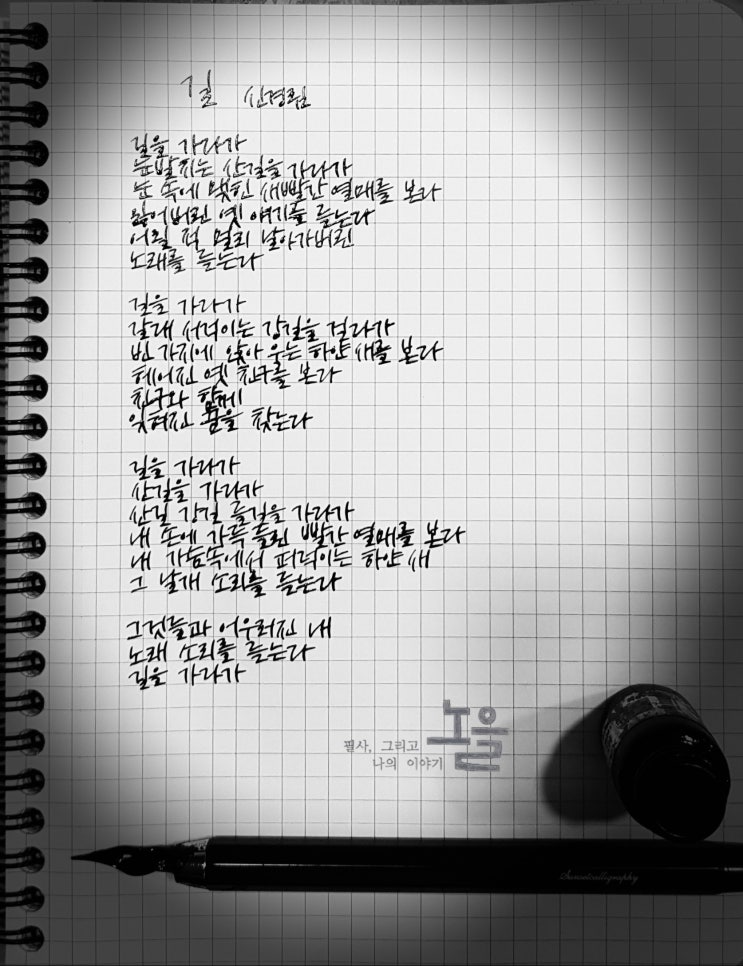 길 신경림
길을 가다가
눈발치는 산길을 가다가
눈 속에 맺힌 새빨간 열매를 본다
잃어버린 옛 얘기를 듣는다
어릴 적 멀리 날아가버린
노래를 듣는다
길을 가다가
갈대 서걱이는 강길을 걷다가
빈 가지에 앉아 우는 하얀 새를 본다
헤어진 옛 친구를 본다
친구와 함께
잊혀진 꿈을 찾는다
길을 가다가
산길을 가다가
산길 강길 들길을 가다가
내 손에 가득 들린 빨간 열매를 본다
내 가슴속에서 퍼덕이는 하얀 새
그 날개 소리를 듣는다
그것들과 어우러진 내
노래 소리를 듣는다
길을 가다가
필사, 그리고
나의 이야기
노을
Sunsetcalligraphy